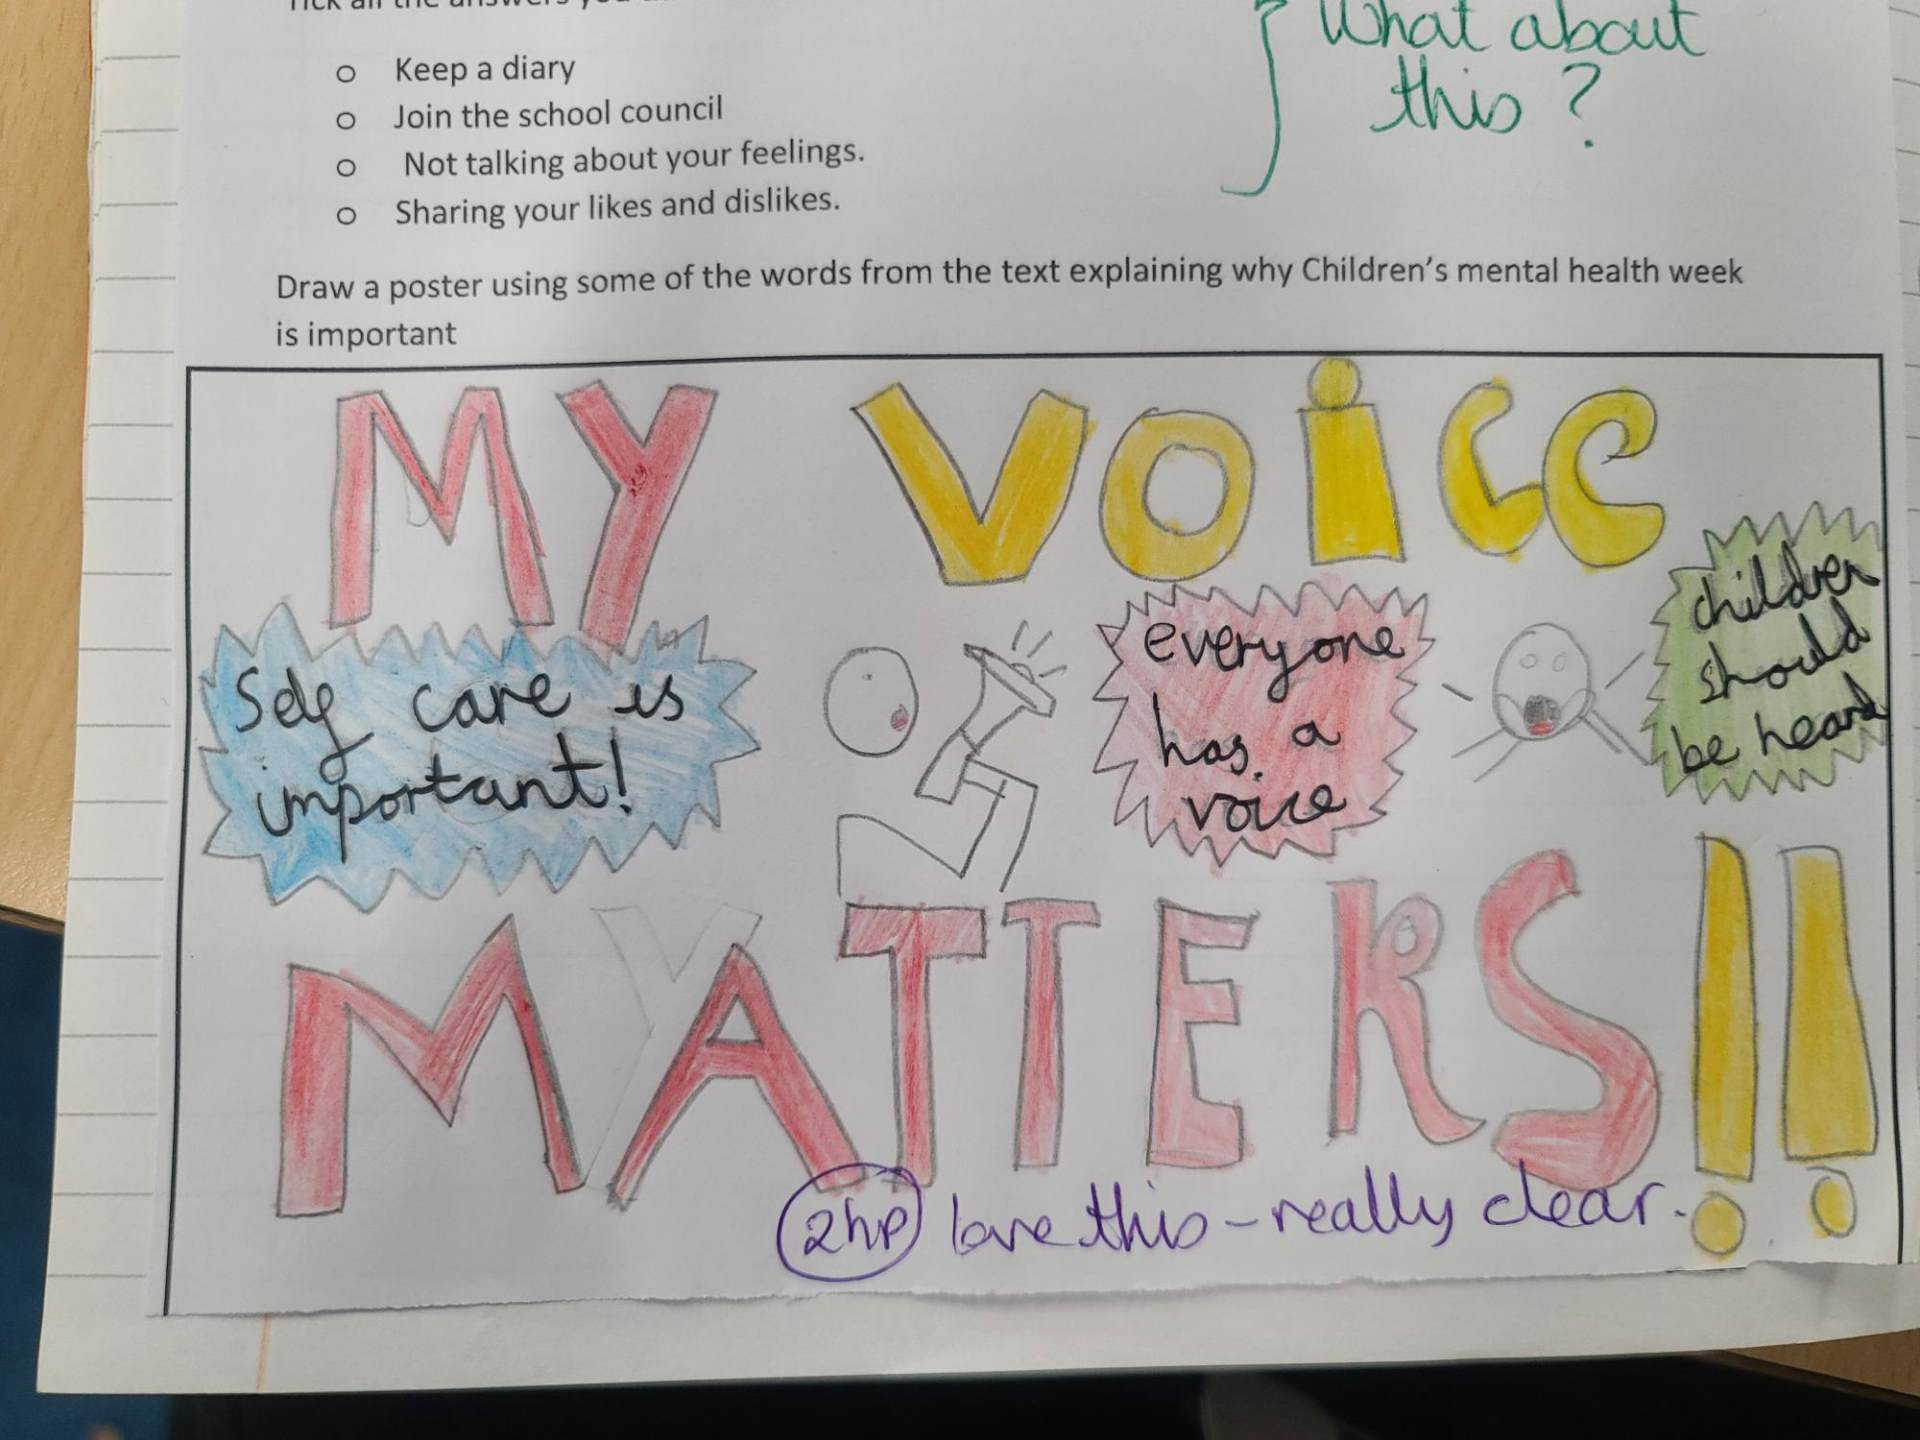 Tick all the answers you
What about
this?
o Keep a diary
o Join the school council
o Not talking about your feelings.
o Sharing your likes and dislikes.
Draw a poster using some of the words from the text explaining why Children's mental health week
is important
MY VOiCe
Self care is
important!
everyone
has a
voice
children
should
be heard
MATTERS!!
2hp love this - really clear.